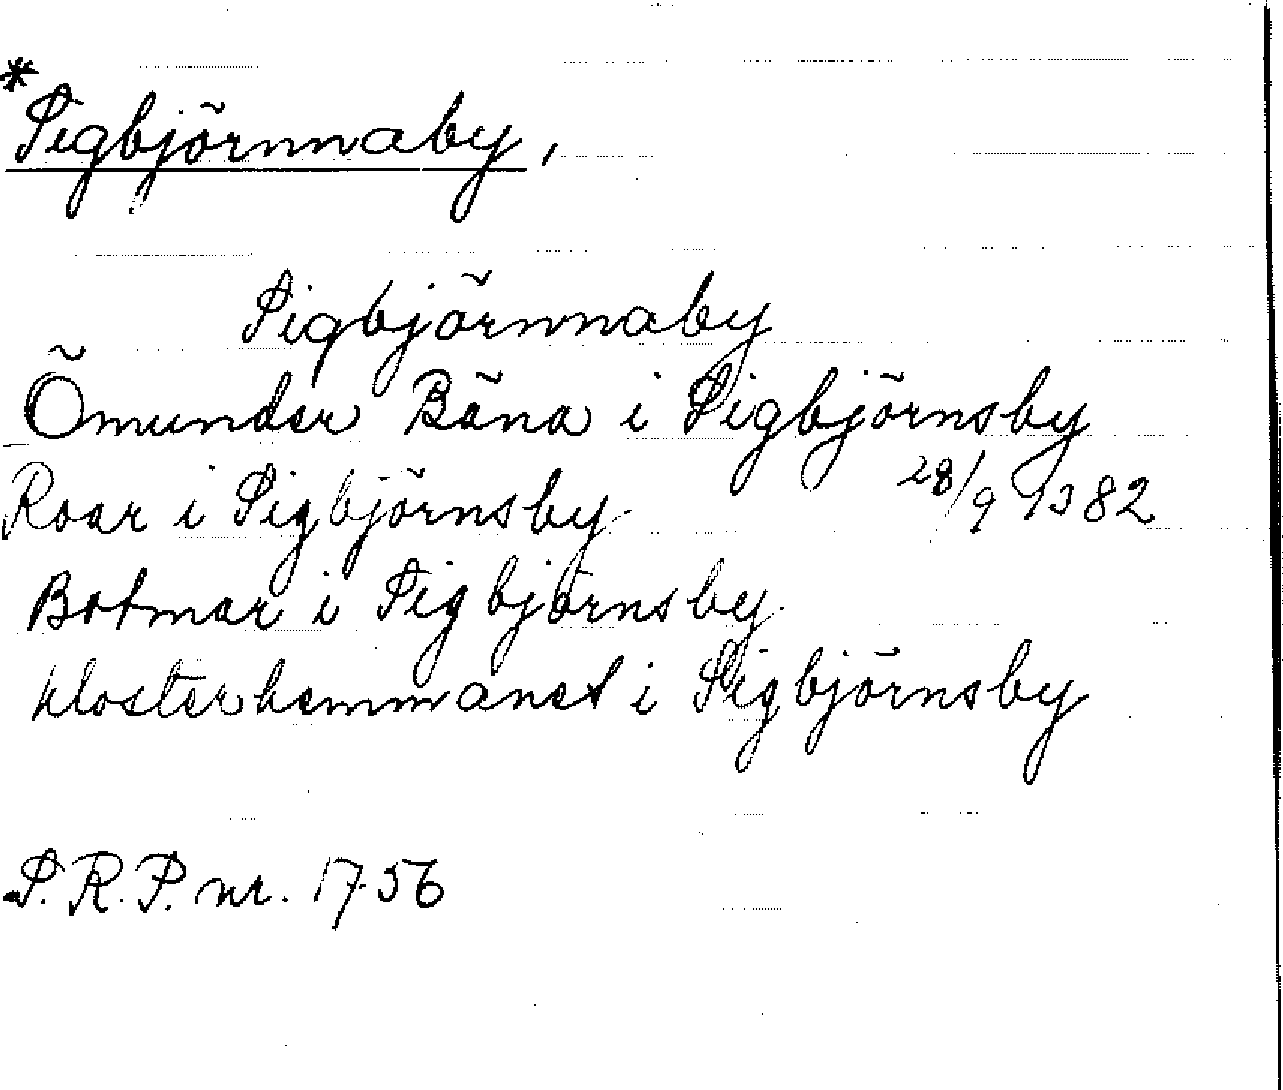 *Sigbjörnnaby,
Sigbjörnnaby
Ömunder Böna i Sigbjörnsby
Roar i Sigbjörnsby 28/9 1382
Botmar i Sigbjörnsby
klosterhemmanet i Sigbjörnsby
S.R.P. nr. 1756